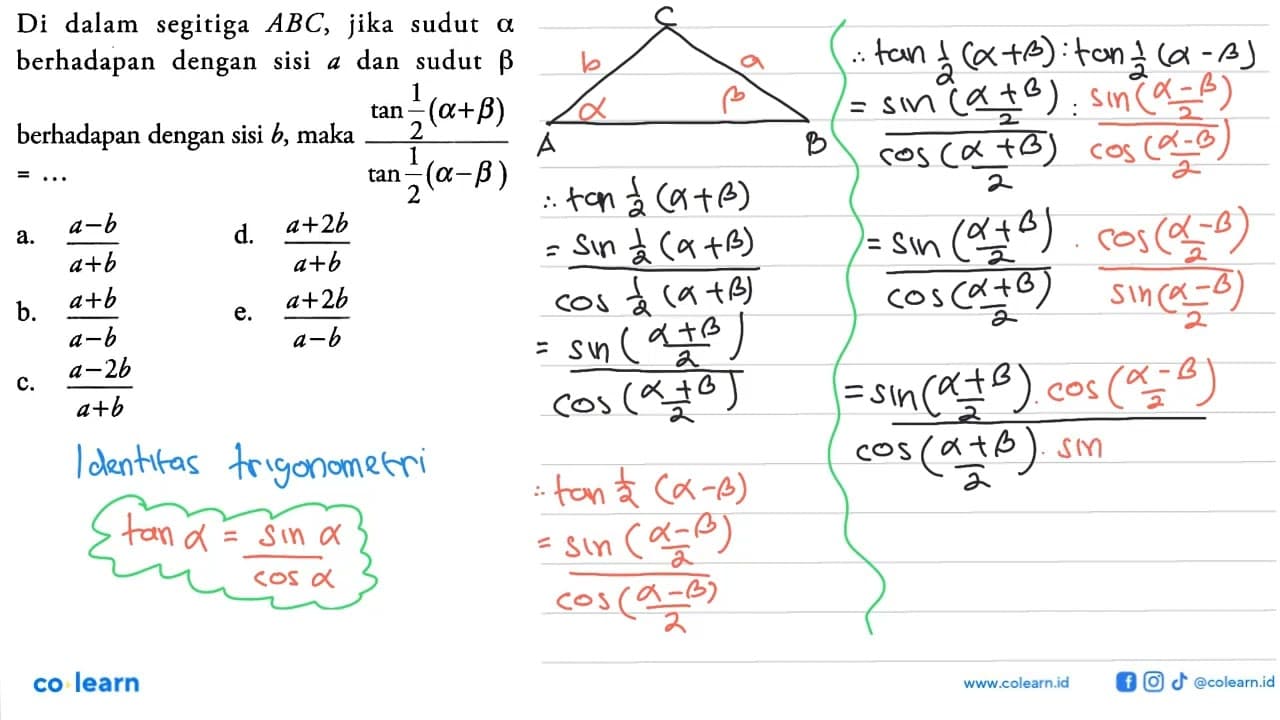 Di dalam segitiga ABC, jika sudut α
berhadapan dengan sisi a dan sudut β
berhadapan dengan sisi b, maka \frac{\tan \frac{1}{2}(α+β)}{\tan \frac{1}{2}(α−β)}
= ...
a. \frac{a−b}{a+b}
b. \frac{a+b}{a−b}
c. \frac{a−2b}{a+b}
d. \frac{a+2b}{a+b}
e. \frac{a+2b}{a−b}
Identitas trigonometri
tan α = \frac{sin α}{cos α}
C
b a
α β
A B
∴ tan \frac{1}{2} (α+β)
= \frac{sin \frac{1}{2} (α+β)}{cos \frac{1}{2} (α+β)}
= \frac{sin (\frac{α+β}{2})}{cos (\frac{α+β}{2})}
∴ tan \frac{1}{2} (α−β)
= \frac{sin (\frac{α−β}{2})}{cos (\frac{α−β}{2})}
∴ tan \frac{1}{2} (α+β) : tan \frac{1}{2} (α−β)
= \frac{sin (\frac{α+β}{2})}{cos (\frac{α+β}{2})} : \frac{sin (\frac{α−β}{2})}{cos (\frac{α−β}{2})}
= \frac{sin (\frac{α+β}{2})}{cos (\frac{α+β}{2})} . \frac{cos (\frac{α−β}{2})}{sin (\frac{α−β}{2})}
= \frac{sin (\frac{α+β}{2}) . cos (\frac{α−β}{2})}{cos (\frac{α+β}{2}) . sin}
co learn
www.colearn.id
@colearn.id